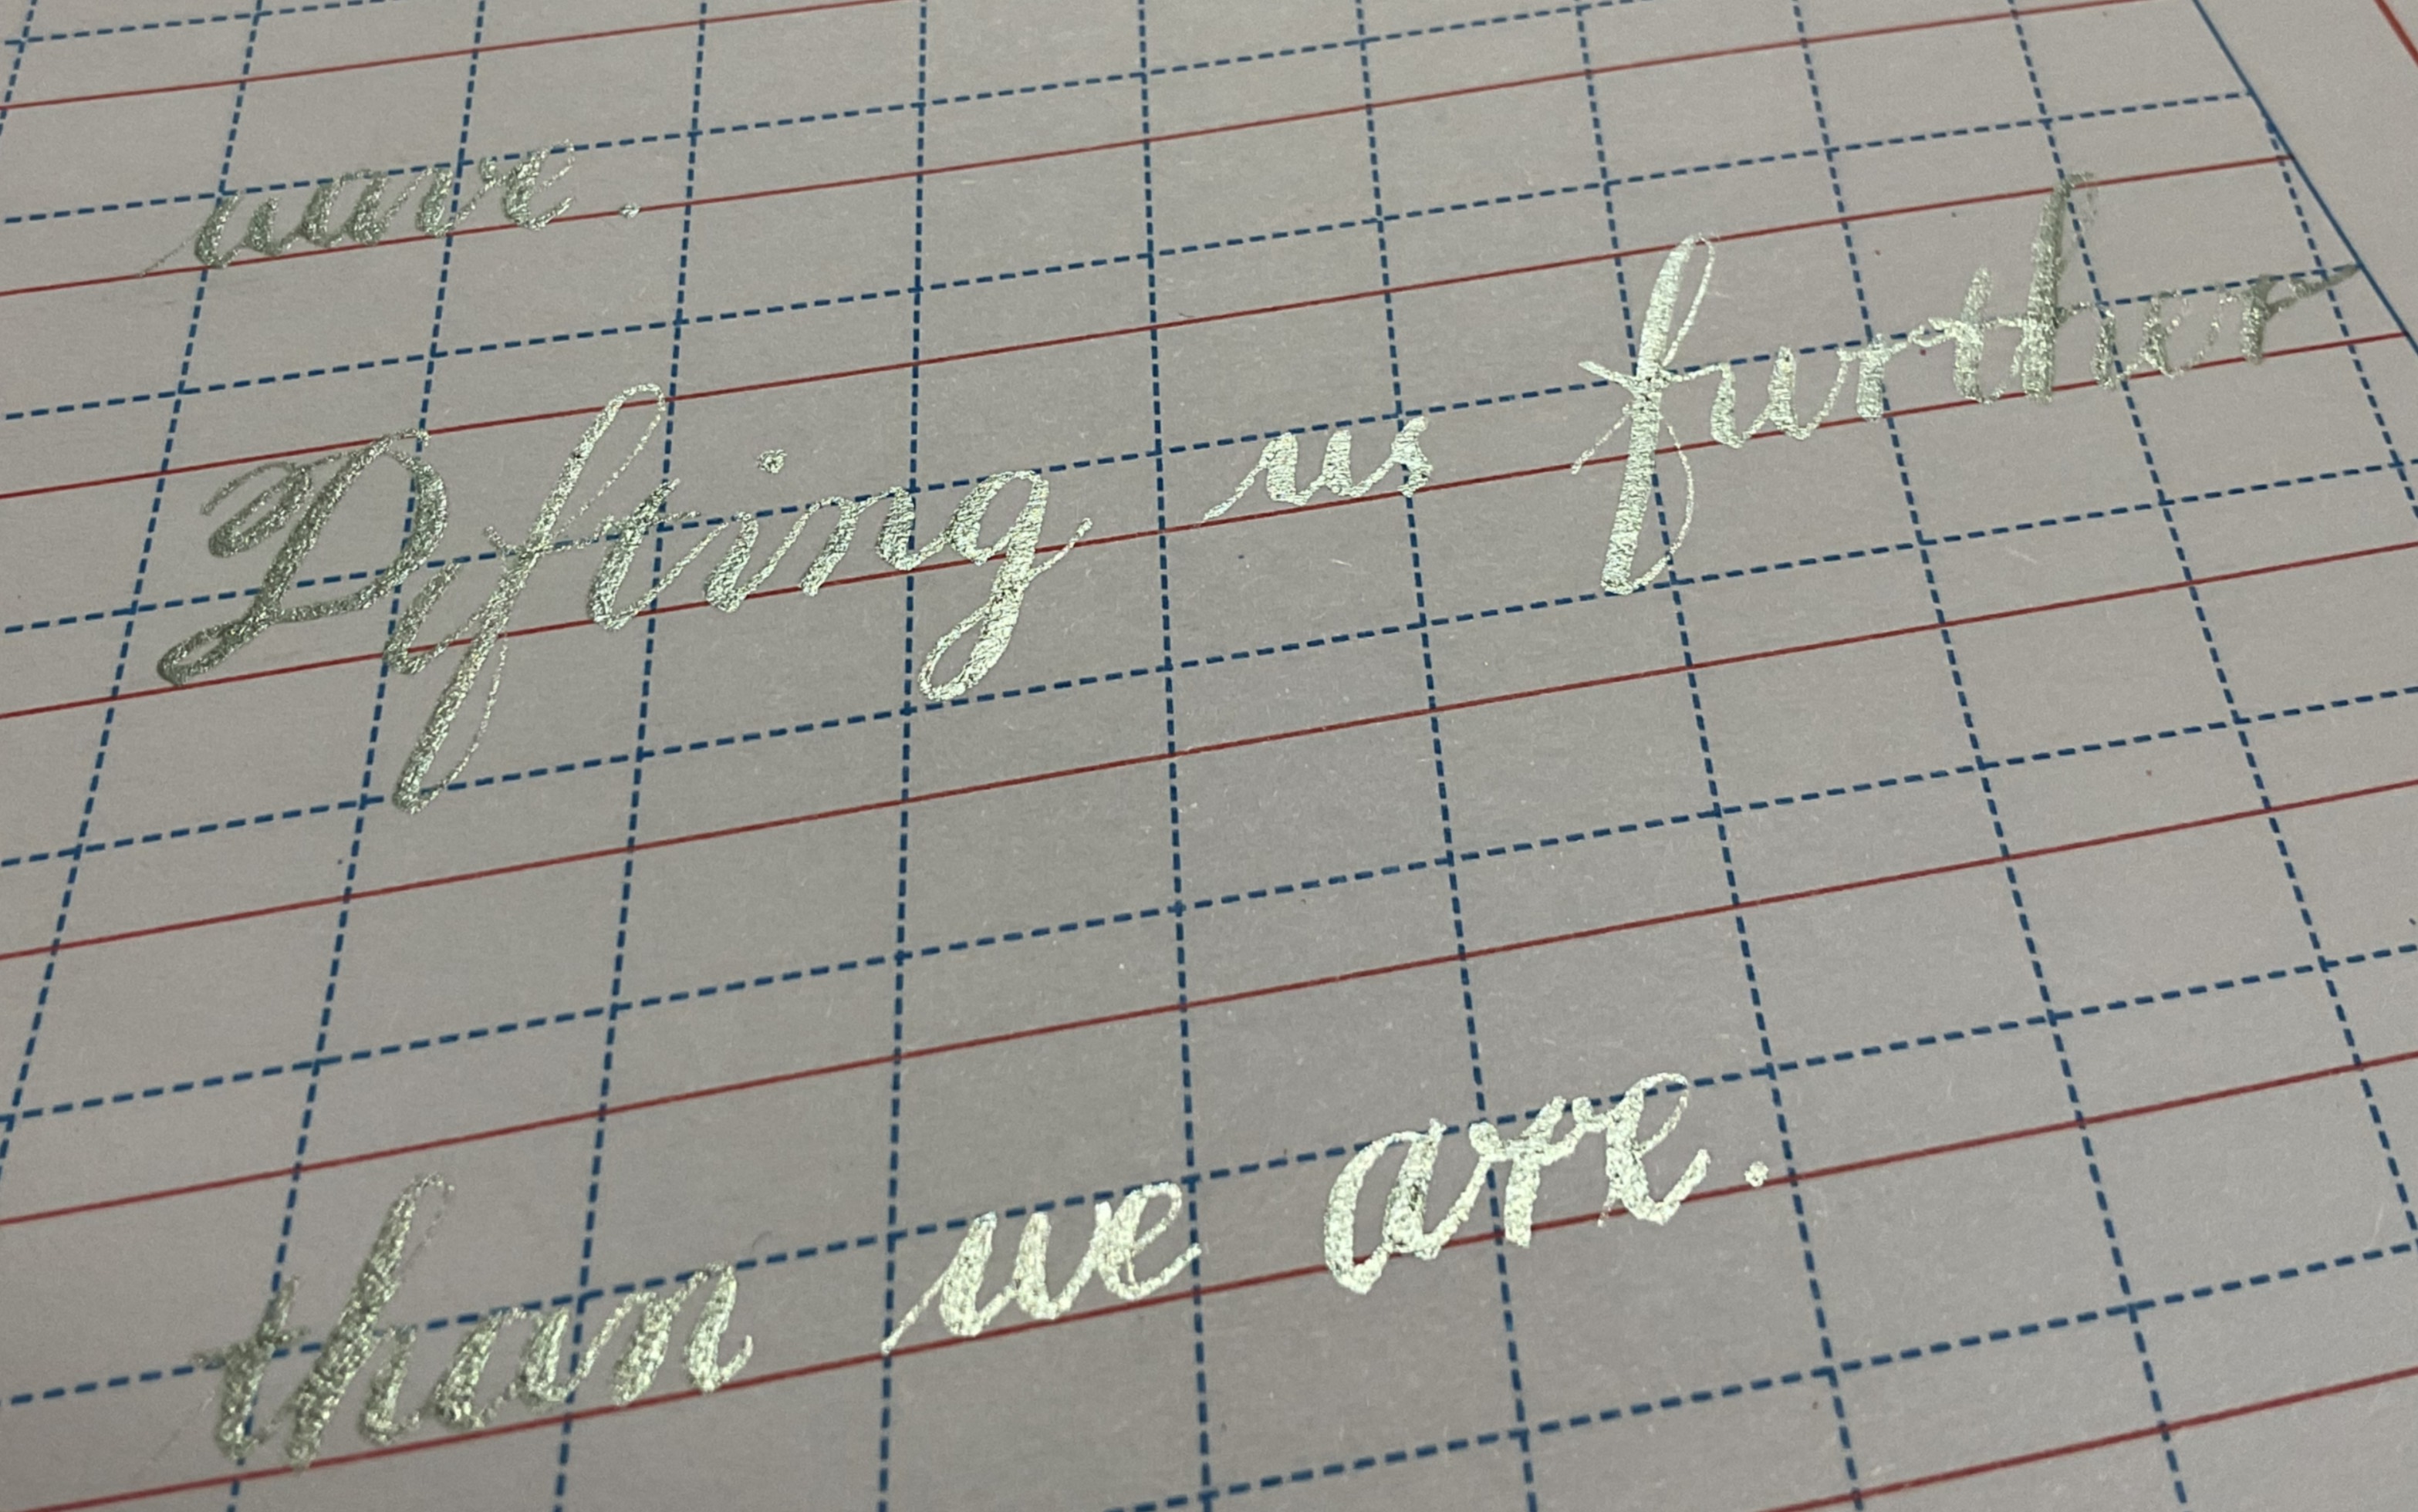 wave.
Difting us further
than we are.